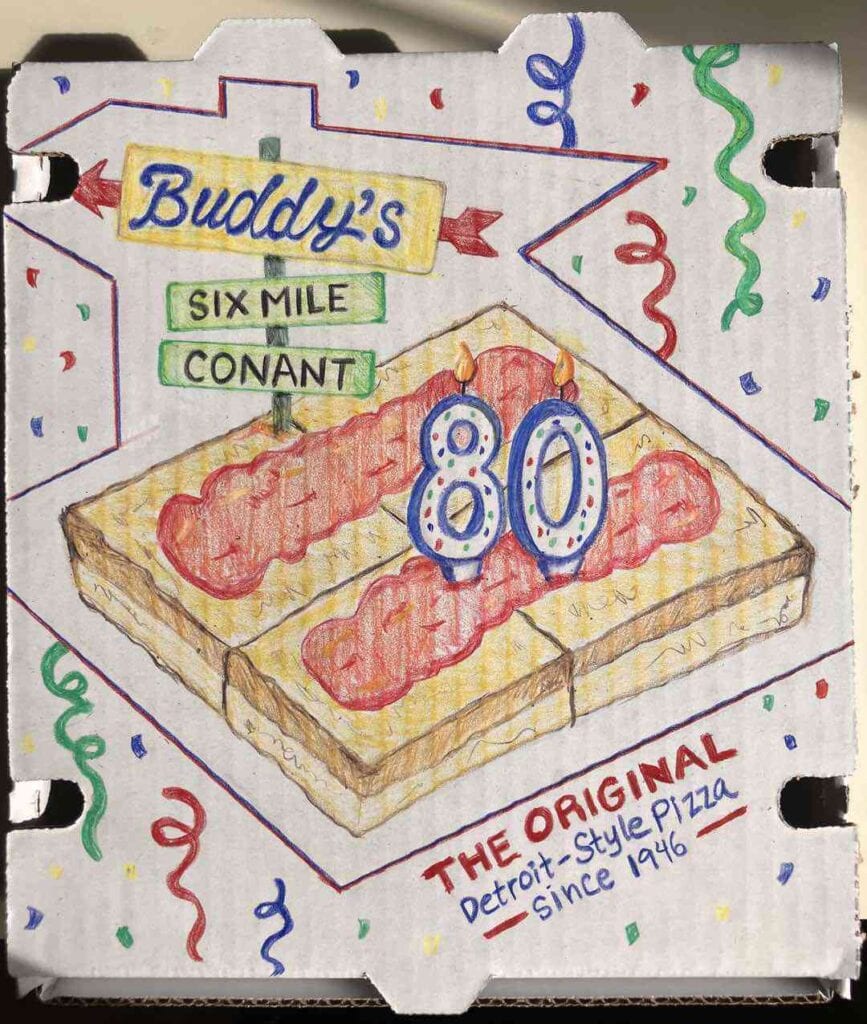 Buddy's
SIX MILE
CONANT
80
THE ORIGINAL
Detroit-Style Pizza
since 1946